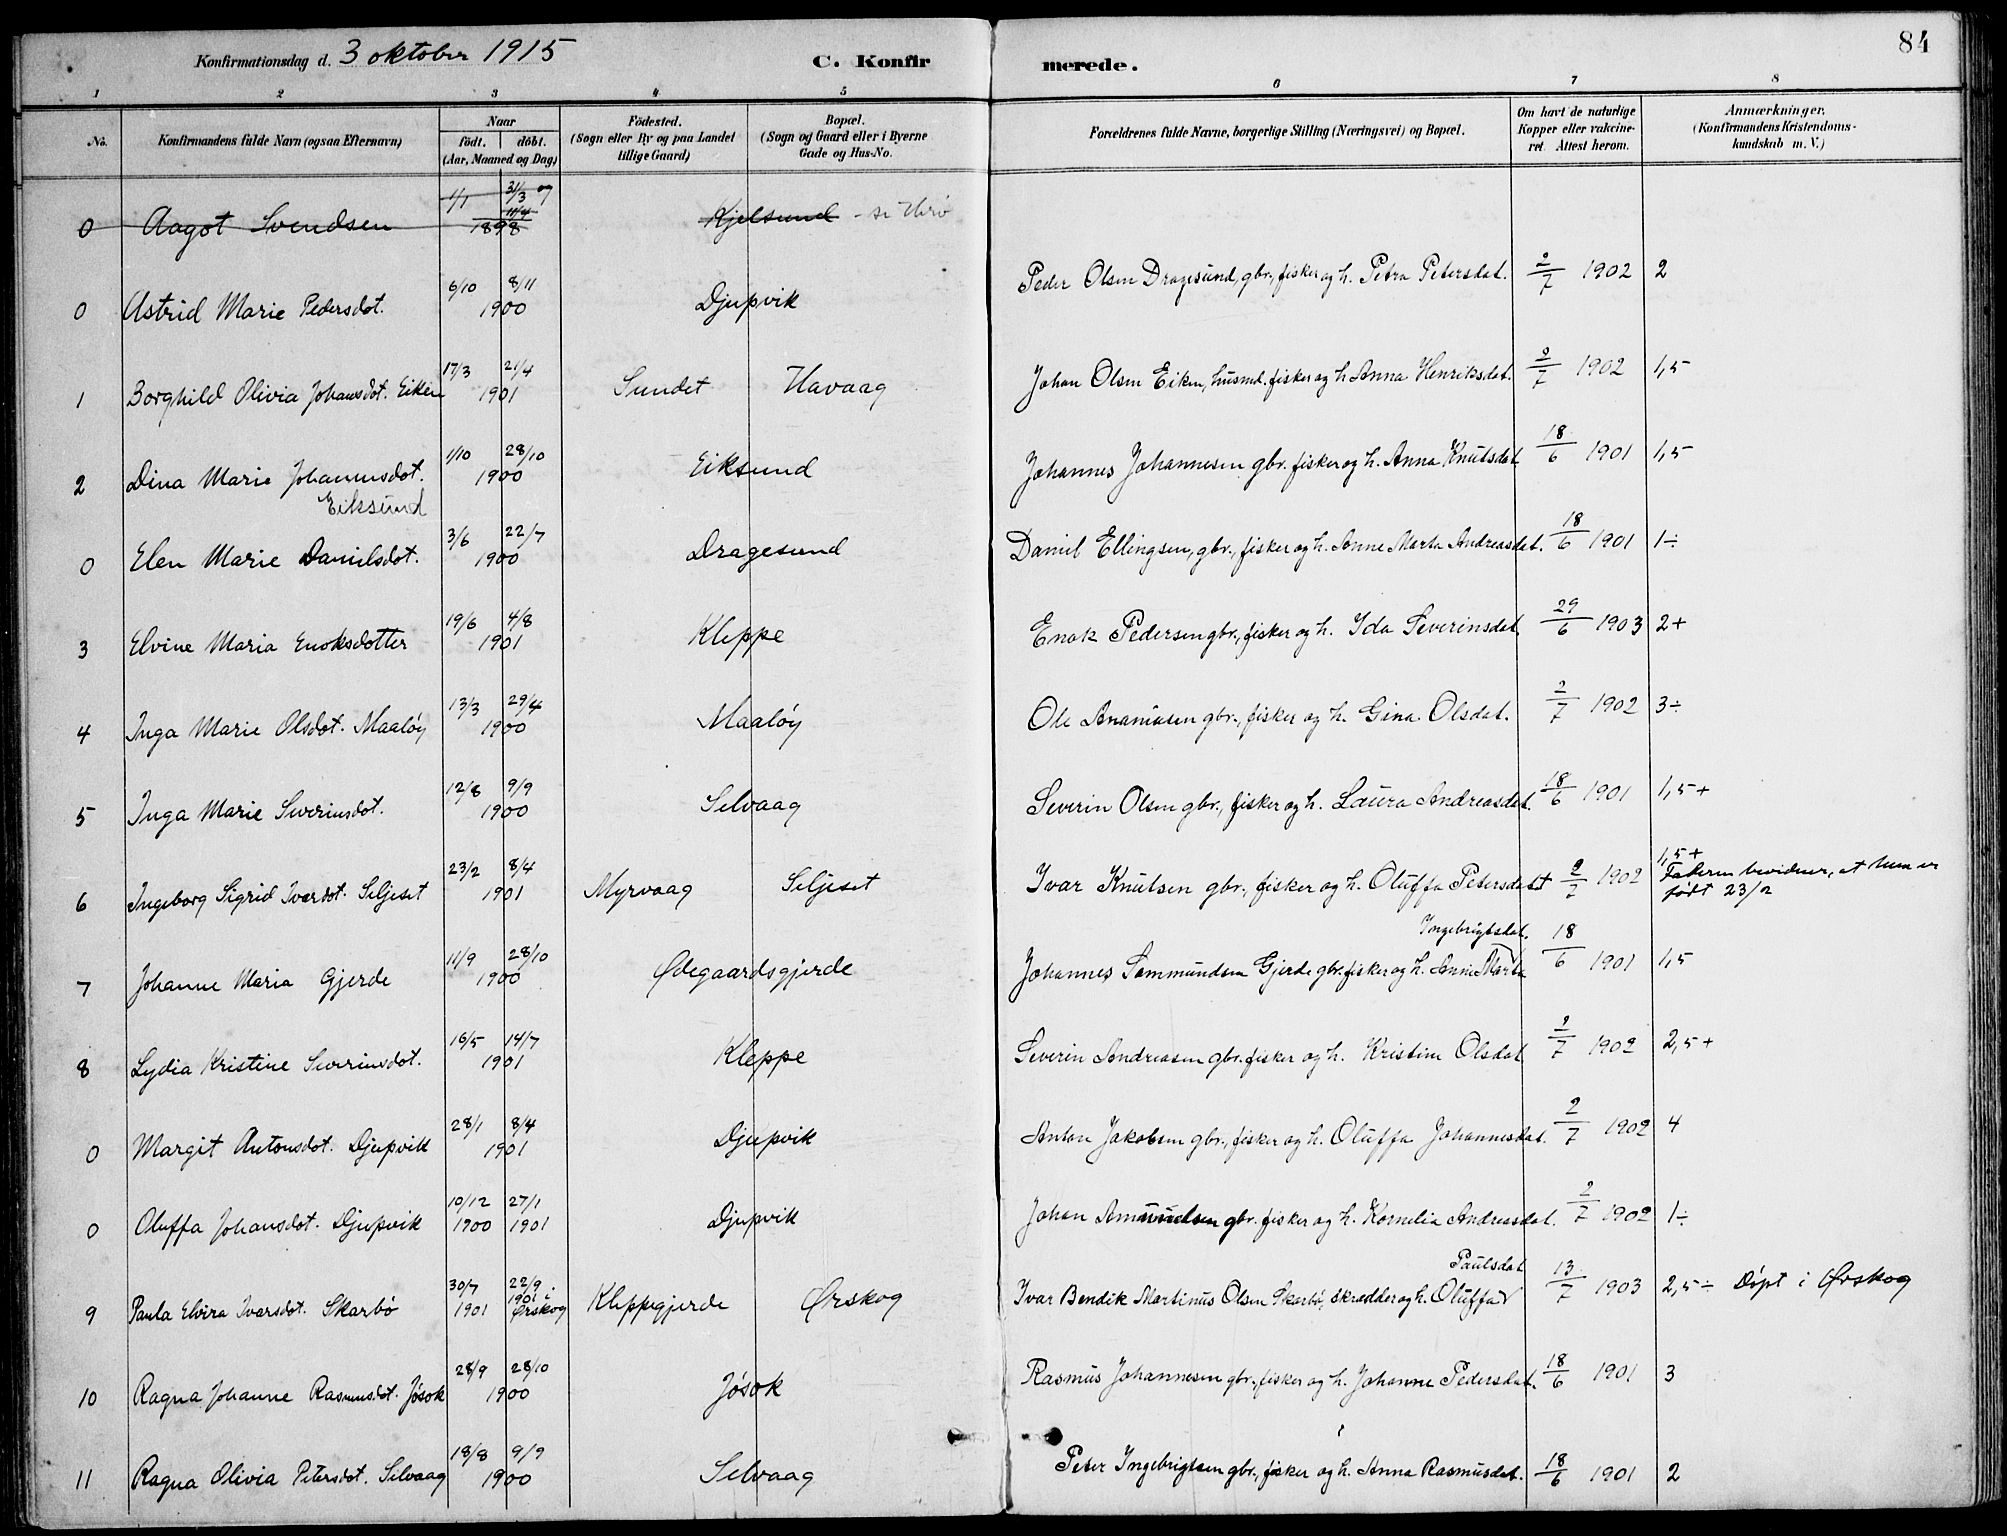 84
Konfirmationsdag d. 3 oktober 1915 C. Konfirmerede.
1 2 3 4 5 6 7 8
No. Konfirmandens fulde Navn (ogsaa Efternavn) Naar født. døbt. (Aar, Maaned og Dag) Fødested. (Sogn eller By og paa Landet tillige Gaard) Bopæl. (Sogn og Gaard eller i Byerne Gade og Hus-No. Forældrenes fulde Navne, borgerlige Stilling (Næringsvei) og Bopæl. Om havt de naturlige Kopper eller vakcineret. Attest herom. Anmærkninger. (Konfirmandens Kristendomskundskab m. V.)
0 Aagot Svendsen 1/1 31/3 og 11/4 1898 Kjelsund - se
0 Astrid Marie Pedersdot. 6/10 8/11 1900 Djupvik Peder Olsen Dragesund, gbr., fisker og h. Petra Petersdat. 2/7 1902 2
1 Borghild Olivia Johansdot. Eiken 17/3 21/4 1901 Sundet Havaag Johan Olsen Eiken, husmd. fisker og h. Anna Henriksdat. 2/7 1902 1,5
2 Dina Marie Johannesdot. Eiksund 1/10 28/10 1900 Eiksund Johannes Johannesen gbr. fisker og h. Anna Knutsdat 18/6 1901 1,5
0 Elen Marie Danielsdot. 3/6 22/7 1900 Dragesund Daniel Ellingsen, gbr., fisker og h. Anne Marta Andreasdat. 18/6 1901 1÷
3 Elvine Maria Enoksdotter 19/6 4/8 1901 Kleppe Enok Pedersen gbr., fisker og h. Ida Severinsdat. 29/6 1903 2+
4 Inga Marie Olsdot. Maaløy 13/3 29/4 1900 Maaløy Ole Ananiasen gbr., fisker og h. Gina Olsdat. 2/7 1902 3÷
5 Inga Marie Severinsdot. 12/8 9/9 1900 Selvaag Severin Olsen gbr., fisker og h. Laura Andreasdat. 18/6 1901 1,5+
6 Ingeborg Sigrid Ivarsdot. Seljeset 23/2 8/4 1901 Myrvaag Seljeset Ivar Knutsen gbr., fisker og h. Oluffa Petersdat 2/7 1902 1,5+ Faderen bevidner, at hun er født 23/2
7 Johanne Maria Gjerde 11/9 28/10 1900 Ødegaardsgjerde Johannes Sammundsen Gjerde gbr. fisker og h. Anne Marta Ingebrigtsdat. 18/6 1901 1,5
8 Lydia Kristine Severinsdot. 16/5 14/7 1901 Kleppe Severin Andreasen gbr. fisker og h. Kristine Olsdat 2/7 1902 2,5+
0 Margit Antonsdot. Djupvik 28/1 8/4 1901 Djupvik Anton Jakobsen gbr., fisker og h. Oluffa Johannesdat. 2/7 1902 4
0 Oluffa Johansdot. Djupvik 10/12 1900 27/1 1901 Djupvik Johan Amundsen gbr. fisker og h. Kornelia Andreasdat. 2/7 1902 1÷
9 Paula Elvira Ivarsdot. Skarbø 30/7 1901 22/9 1901 i Ørskog Kleppegjerde Ørskog Ivar Bendik Martinus Olsen Skarbø, skrædder og h. Oluffa Paulsdat 13/7 1903 2,5÷ Døpt i Ørskog
10 Ragna Johanne Rasmusdot. Jøsok 28/9 28/10 1900 Jøsok Rasmus Johannesen gbr., fisker og h. Johanne Pedersdat. 18/6 1901 3
11 Ragna Olivia Petersdot. Selvaag 18/8 9/9 1900 Selvaag Peter Ingebrigtsen gbr., fisker og h. Anna Rasmusdat. 18/6 1901 2